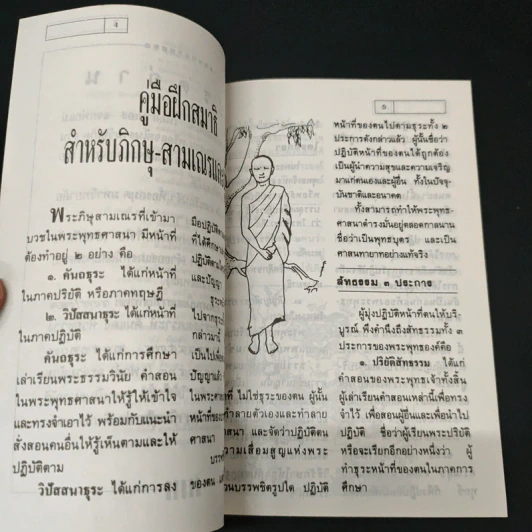 ๔
คู่มือฝึกสมาธิ
สำหรับภิกษุ-สามเณร
พระภิษุสามเณรที่เข้ามา
บวชในพระพุทธศาสนา มีหน้าที่
ต้องทำอยู่ ๒ อย่าง คือ
๑. คันถธุระ ได้แก่หน้าที่
ในภาคปริยัติ หรือภาคทฤษฎี
๒. วิปัสสนาธุระ ได้แก่หน้าที่
ในภาคปฏิบัติ
คันถธุระ ได้แก่การศึกษา
เล่าเรียนพระธรรมวินัย คำสอน
ในพระพุทธศาสนาให้รู้ให้เข้าใจ
และทรงจำเอาไว้ พร้อมกับแนะนำ
สั่งสอนคนอื่นให้รู้เห็นตามและให้
ปฏิบัติตาม
วิปัสสนาธุระ ได้แก่การลง
มือปฏิบัติ
ที่ได้ศึกษา
ปฏิบัติใน
และปัญญา
ธุระ
ไปจากธุระ
กล่าวมานี้
เป็นไปเพื่อ
ปัญญาแล้ว
ในพระศาส
หน้าที่ของ
ศาสนา
บรรพ
ของตน
๕
ที่ ไม่ใช่ธุระของตน ผู้นั้น
ทำลายตัวเองและทำลาย
ศาสนา และจัดว่าปฏิบัติตน
ความเสื่อมสูญแห่งพระ
ส่วนบรรพชิตรูปใด ปฏิบัติ
หน้าที่ของตนไปตามธุระทั้ง ๒
ประการดังกล่าวแล้ว ผู้นั้นชื่อว่า
ปฏิบัติหน้าที่ของตนได้ถูกต้อง
เป็นผู้นำความสุขและความเจริญ
มาแก่ตนเองและผู้อื่น ทั้งในปัจจุ-
บันชาติและอนาคต
ทั้งสามารถทำให้พระพุทธ-
ศาสนาดำรงมั่นอยู่ตลอดกาลนาน
ชื่อว่าเป็นพุทธบุตร และเป็น
ศาสนทายาทอย่างแท้จริง
สัทธรรม ๓ ประการ
ผู้มุ่งปฏิบัติหน้าที่ตนให้บริ-
บูรณ์ พึงคำนึงถึงสัทธรรมทั้ง ๓
ประการของพระพุทธองค์คือ
๑. ปริยัติสัทธรรม ได้แก่
คำสอนของพระพุทธเจ้าทั้งสิ้น
ผู้เล่าเรียนคำสอนเหล่านี้เพื่อทรง
จำไว้ เพื่อสอนผู้อื่นและเพื่อนำไป
ปฏิบัติ ชื่อว่าผู้เรียนพระปริยัติ
หรือจะเรียกอีกอย่างหนึ่งว่า ผู้
ทำธุระหน้าที่ของตนในภาคการ
ศึกษา